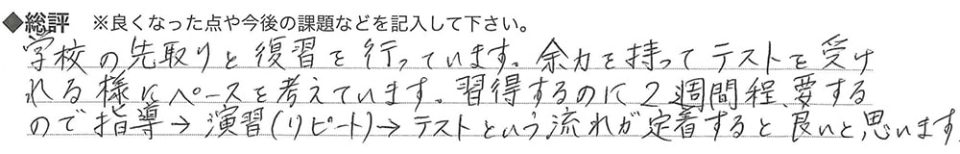 ◆総評 ※良くなった点や今後の課題などを記入して下さい。
学校の先取りと復習を行っています。余力を持ってテストを受け
れる様にペースを考えています。習得するのに2週間程、要する
ので指導→演習(リピート)→テストという流れが定着すると良いと思います